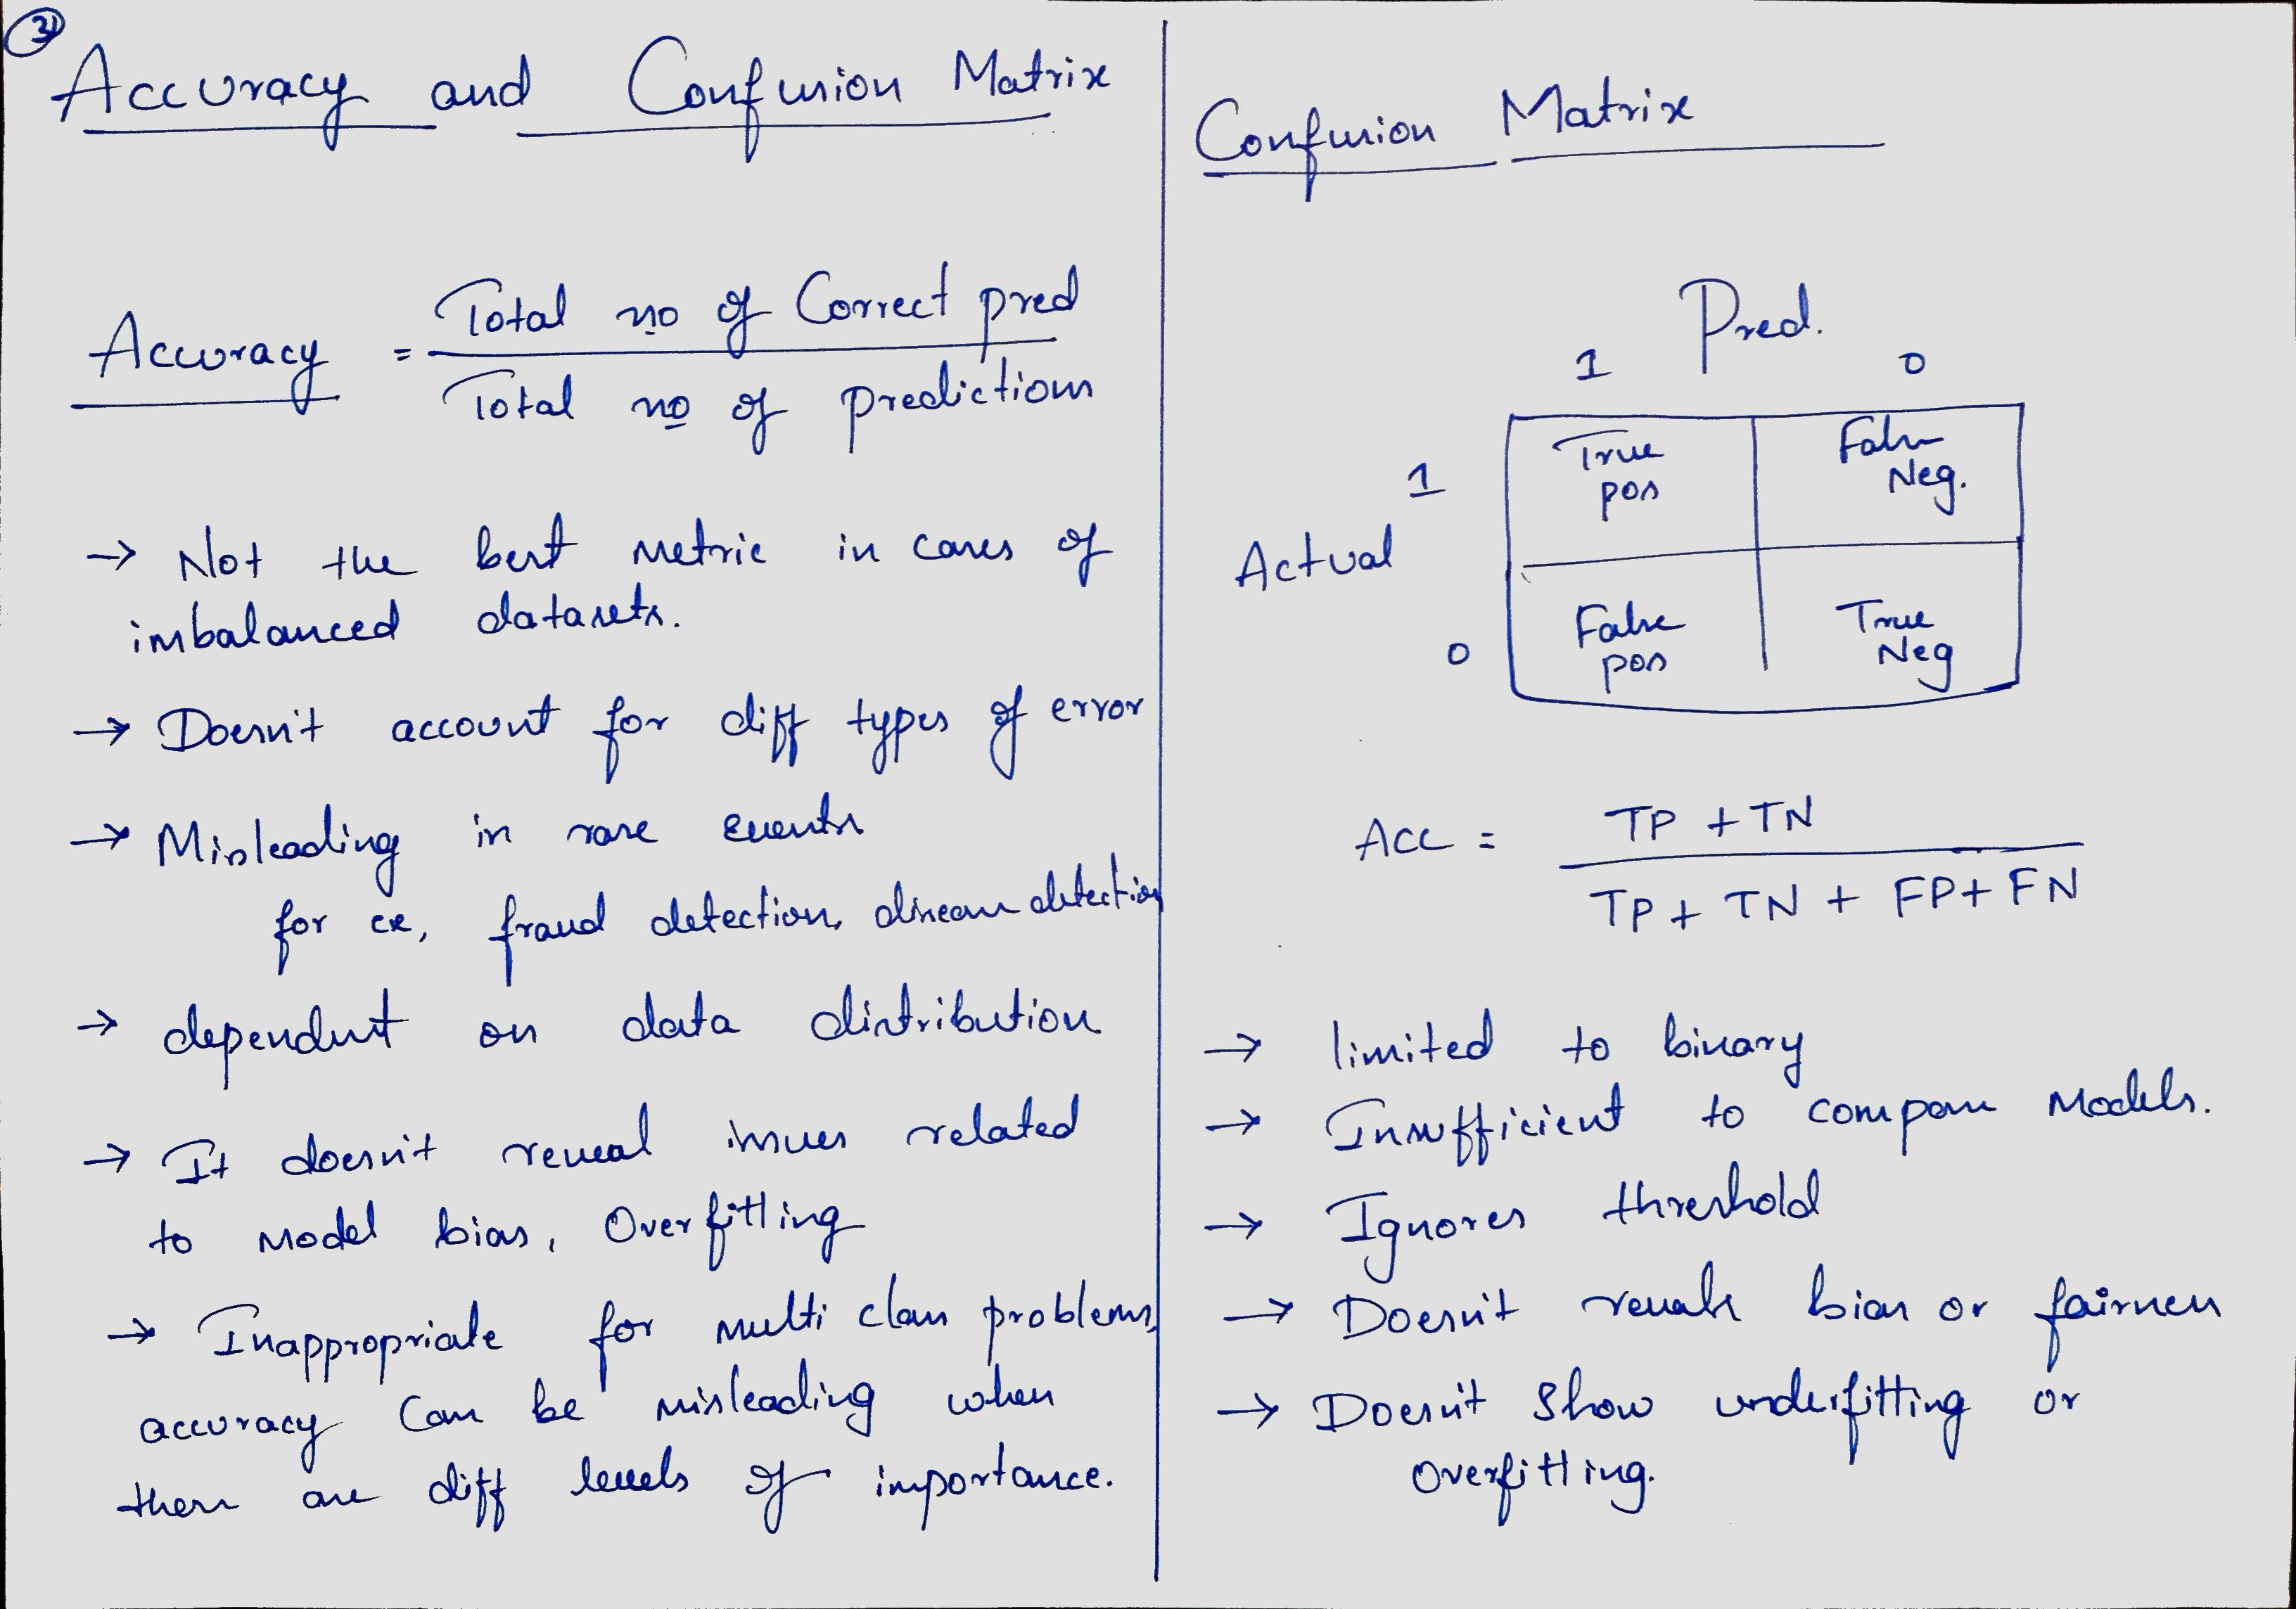 3
Accuracy and Confusion Matrix
Accuracy = Total no of Correct pred
Total no of predictions
→ Not the best metric in cases of
imbalanced datasets.
→ Doesn't account for diff types of error
→ Misleading in rare events
for ex, fraud detection, disease detection
→ dependent on data distribution
→ It doesn't reveal issues related
to model bias, Overfitting
→ Inappropriate for multi class problems,
accuracy Can be misleading when
there are diff levels of importance.
Confusion Matrix
Pred.
1 0
True pos
False Neg.
1
Actual
0
False pos
True Neg
Acc = TP + TN
TP + TN + FP + FN
→ limited to binary
→ Insufficient to compare Models.
→ Ignores threshold
→ Doesn't reveals bias or fairness
→ Doesn't Show underfitting or
Overfitting.